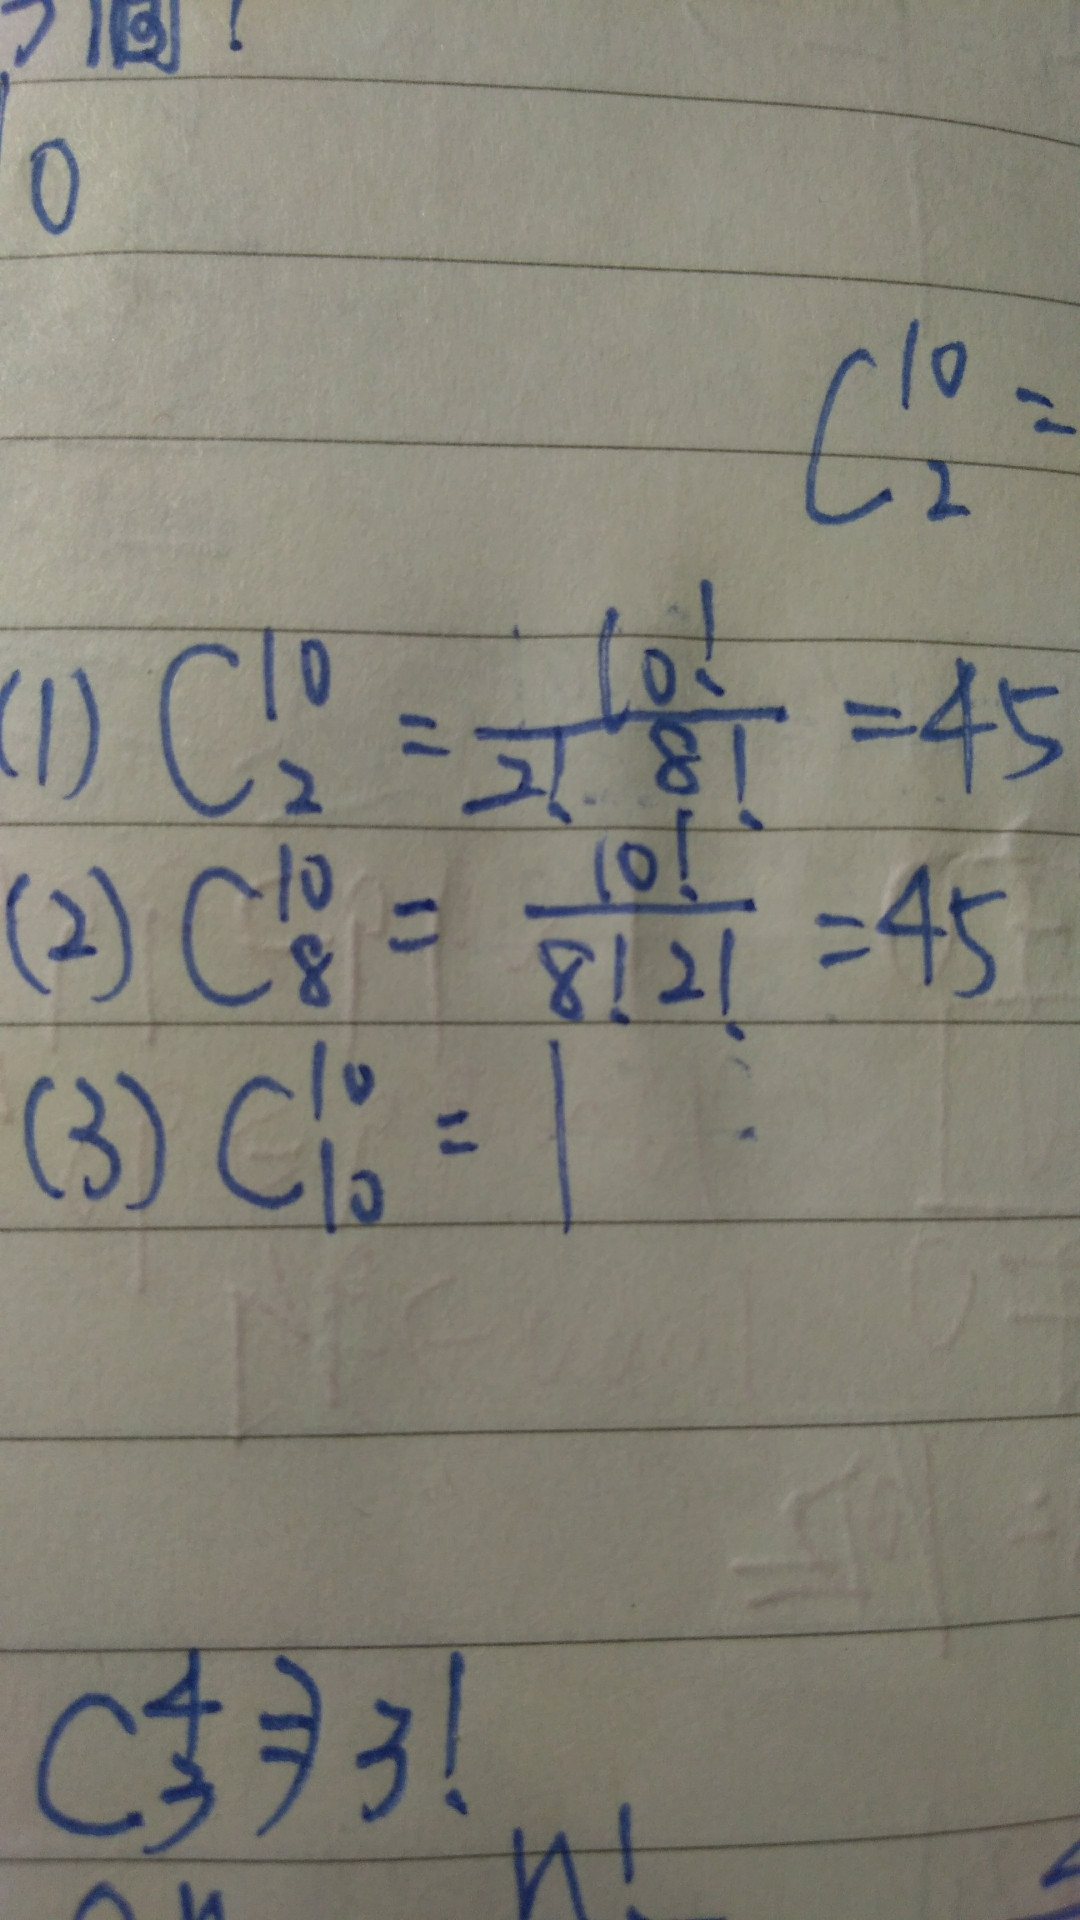 個!
0
C¹⁰₂ =
(1) C¹⁰₂ = 10!/2! 8! = 45
(2) C¹⁰₈ = 10!/8! 2! = 45
(3) C¹⁰₁₀ = 1
C⁴₃ ⇒ 3!
n!